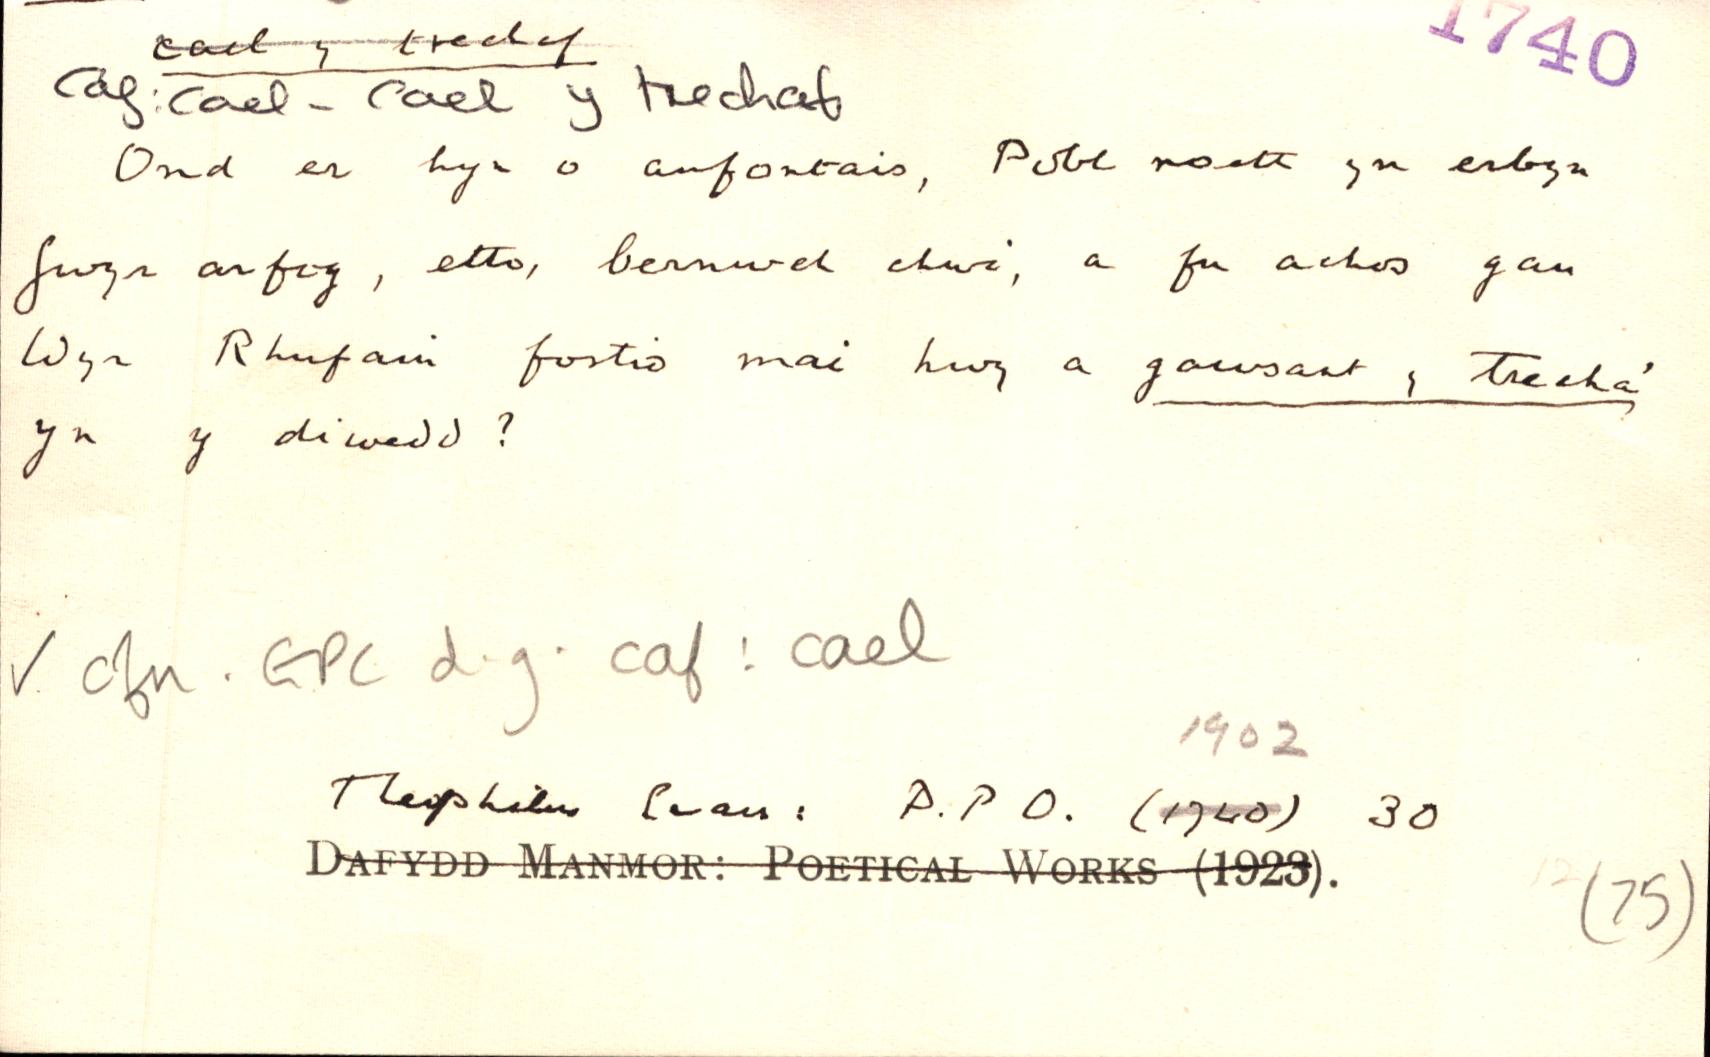 1740
cael y trechaf
Caf: cael - Cael y trechaf
Ond er hyn o anfontais, Pobl noeth yn erbyn
Gwyr arfog, etto, bernwch chwi, a fu achos gan
Wyr Rhufain fostio mai hwy a gawsant y trecha'
yn y diwedd?
✓ cfn. GPC d.g. caf: cael
1902
Theophilus Evans: D.P.O. (1740) 30
DAFYDD MANMOR: POETICAL WORKS (1923).
(75)